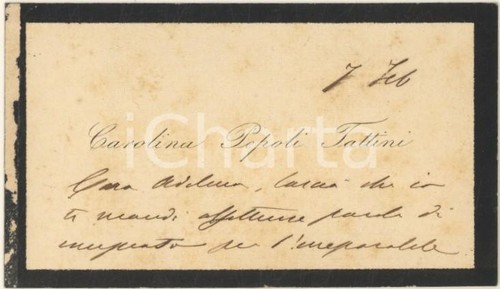 7 Feb
Carolina Pepoli Tattini
iCharta
Cara Adelina, lascia che io
ti mandi affettuose parole di
per l'irreparabile